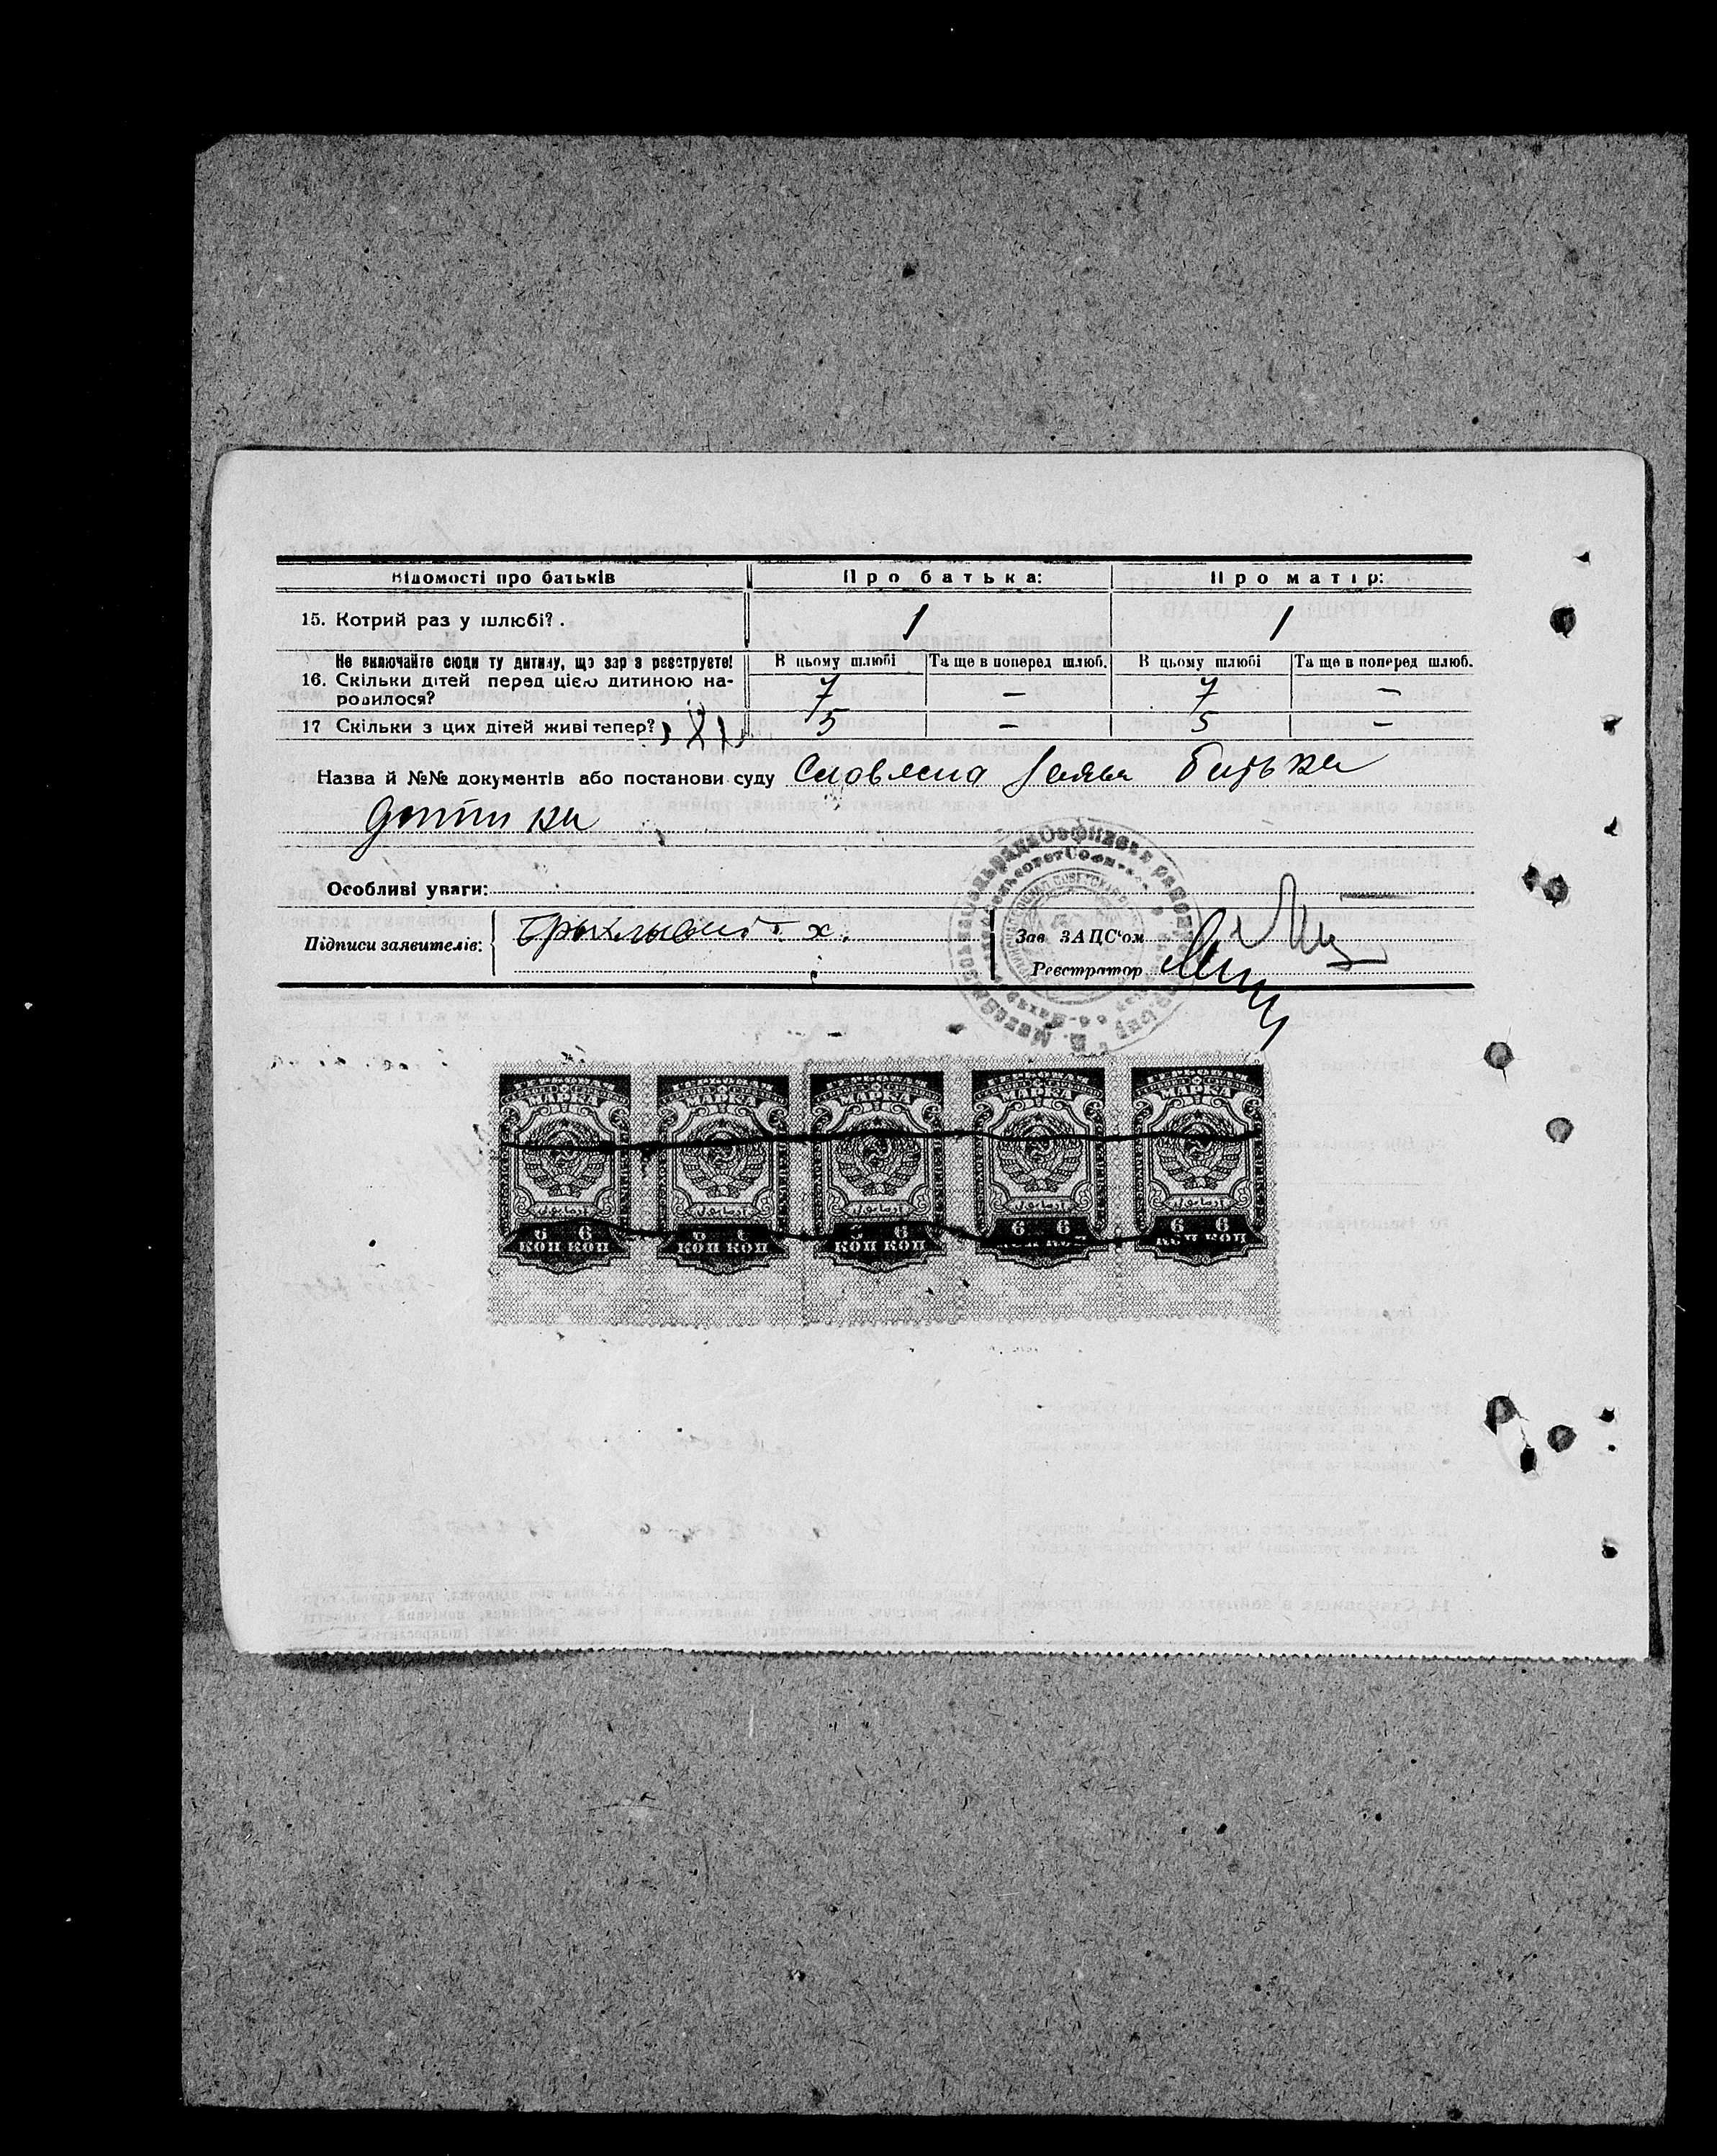 Відомості про батьків Про батька: Про матір:
15. Котрий раз у шлюбі?. 1 1
Не включайте сюди ту дитину, що зараз реєструєте! В цьому шлюбі Та ще в поперед шлюб. В цьому шлюбі Та ще в поперед шлюб.
16. Скільки дітей перед цією дитиною на-
родилося? 7 — 7 —
17 Скільки з цих дітей живі тепер? 5 — 5 —
Назва й №№ документів або постанови суду Словесна заява батька
дитини
Особливі уваги:
Підписи заявителів:
Зав ЗАЦС'ом
Реєстратор
ГЕРБОВАЯ ГЕРБОВАЯ ГЕРБОВАЯ ГЕРБОВАЯ ГЕРБОВАЯ
МАРКА МАРКА МАРКА МАРКА МАРКА
6 6 6 6 6 6 6 6 6 6
КОП КОП КОП КОП КОП КОП КОП КОП КОП КОП